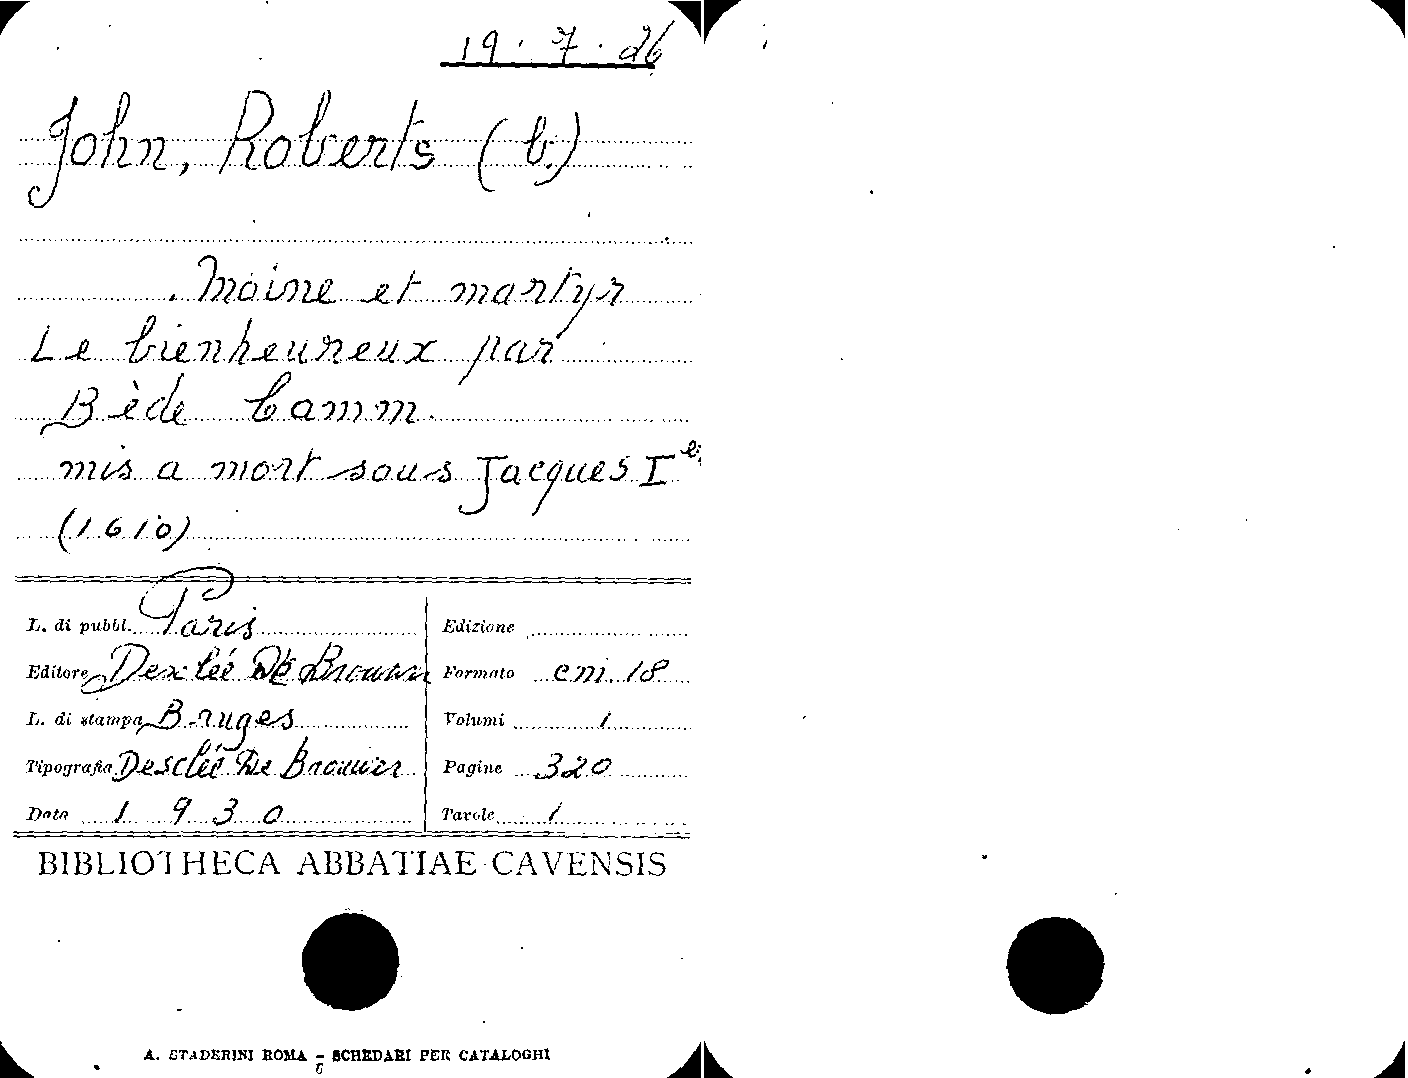 19 · 7 · 26
John, Roberts (b.)
. Moine et martyr
Le bienheureux par
Bède Camm.
mis a mort sous Jacques I er
(1610)
L. di pubbl. Paris
Editore Desclée De Brouwer
L. di stampa Bruges
Tipografia Desclée De Brouwer
Data 1930
Edizione
Formato cm. 18
Volumi 1
Pagine 320
Tavole 1
BIBLIOTHECA ABBATIAE CAVENSIS
A. STADERINI ROMA - SCHEDARI PER CATALOGHI